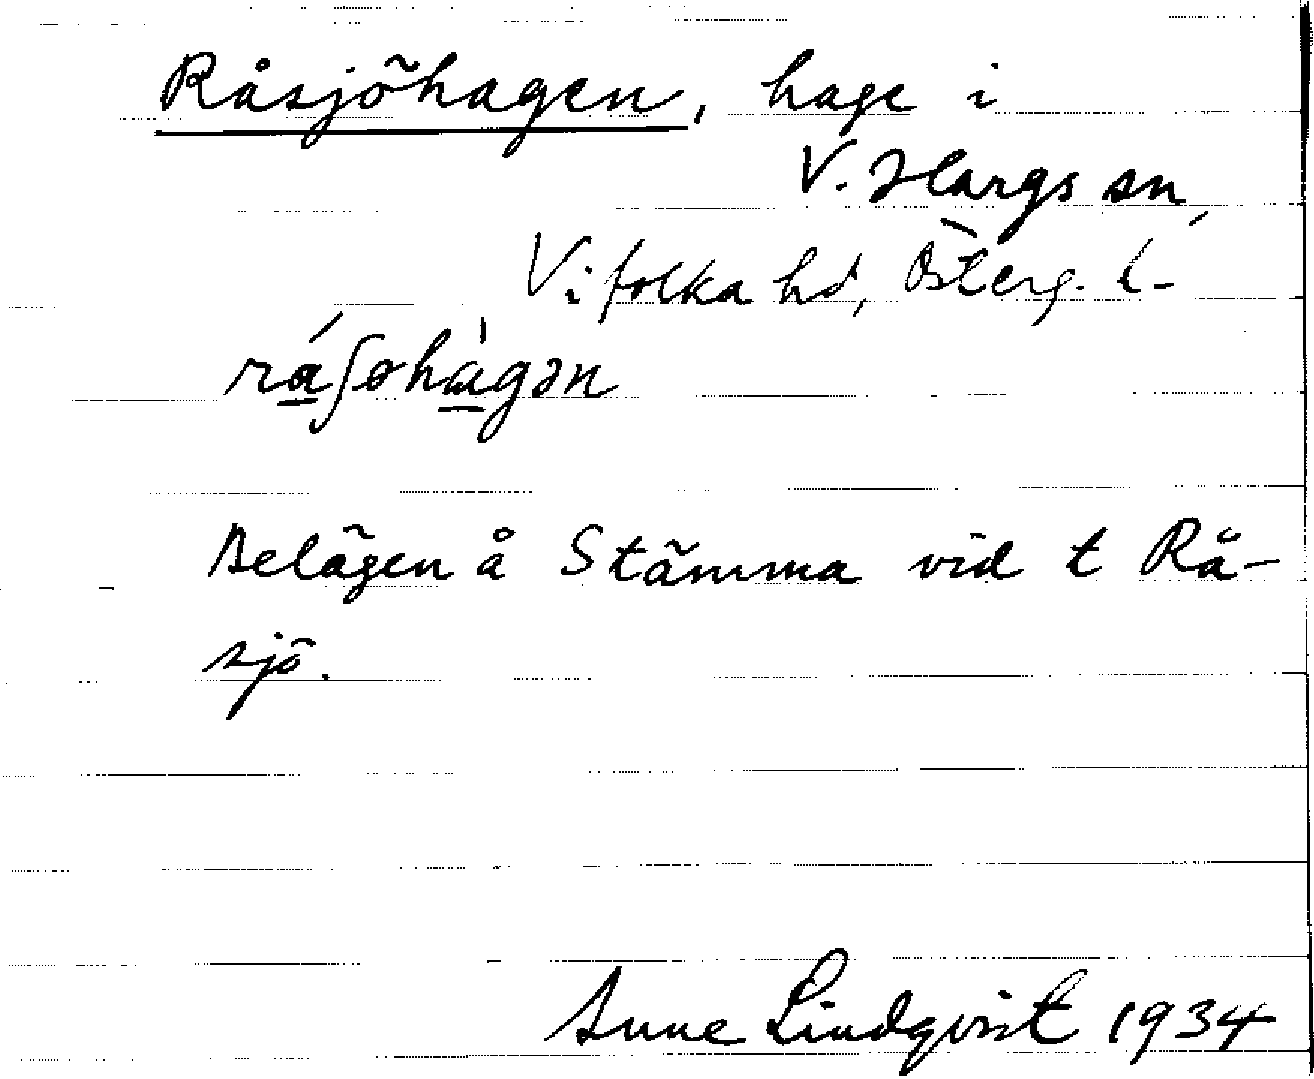 Råsjöhagen, hage i
V. Hargs sn,
Vifolka hd, Österg. l-
rá̱ʃøhà̱gən
Belägen å Stämma vid t Rå-
sjö.
Sune Lindqvist 1934